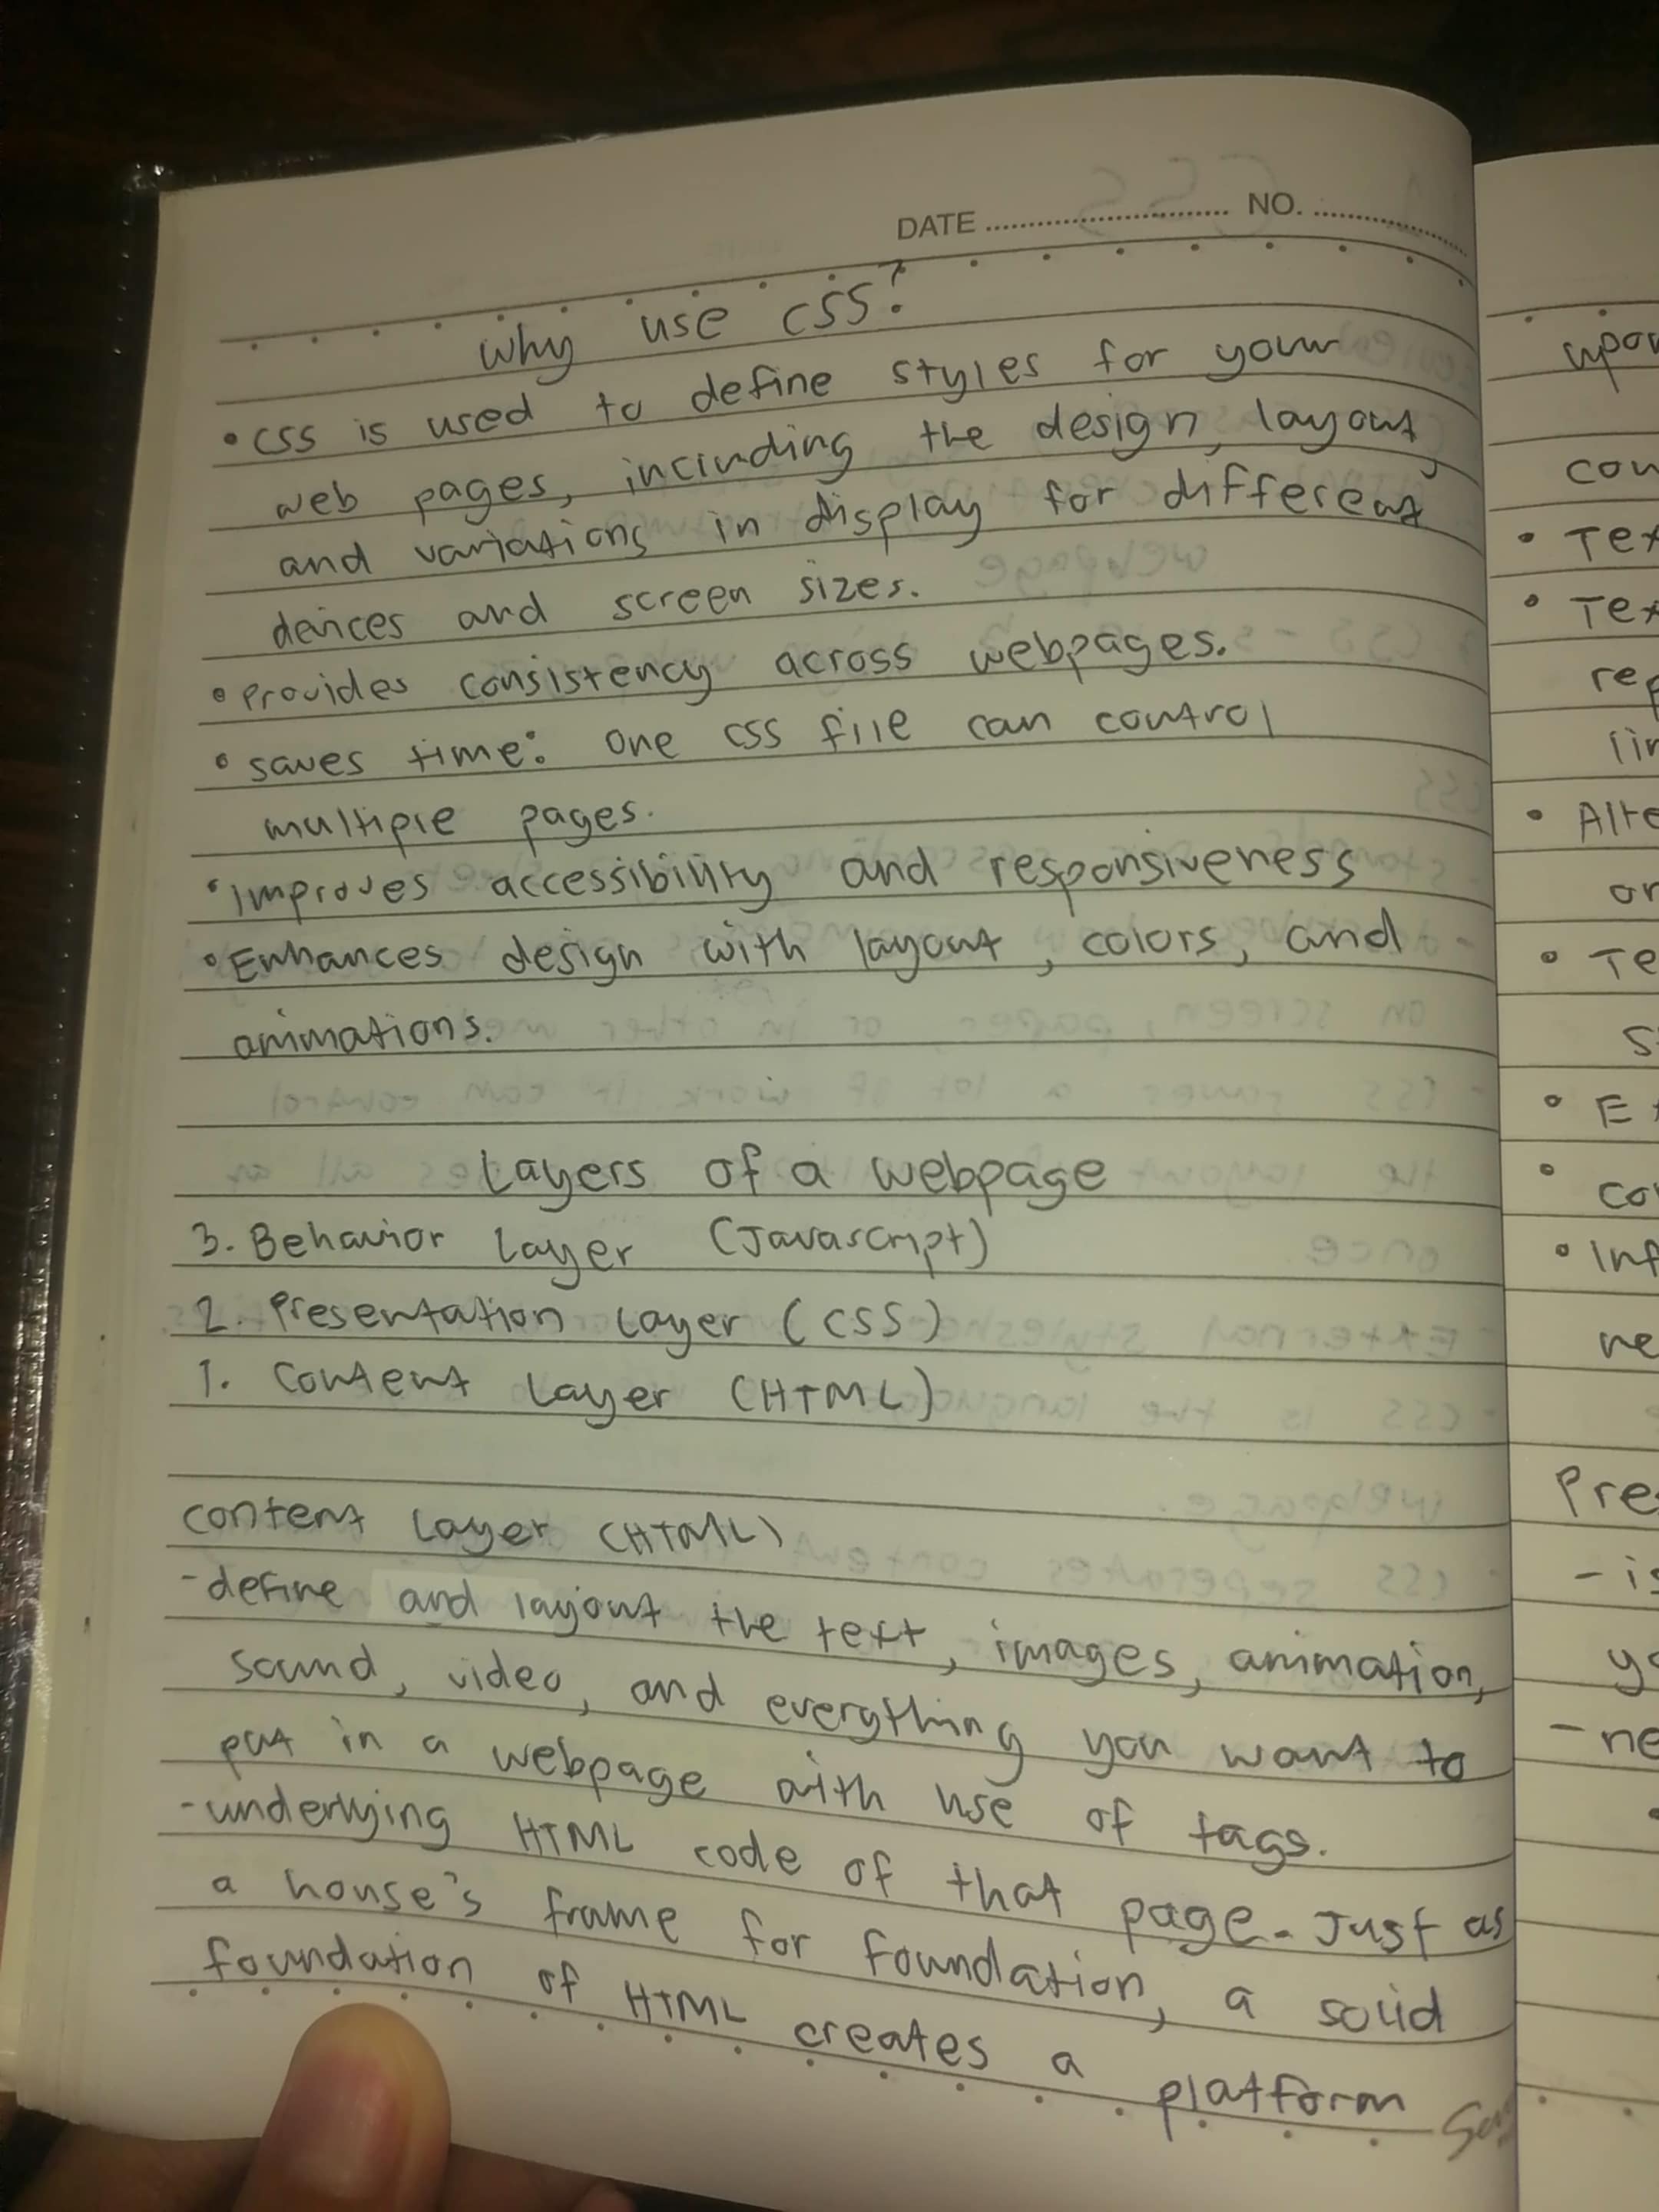 DATE ........ NO. ........
Why use CSS?
• CSS is used to define styles for your
web pages, including the design, layout,
and variations in display for different
devices and screen sizes.
• Provides consistency across webpages.
• saves time: one css file can control
multiple pages.
• Improves accessibility and responsiveness
• Enhances design with layout, colors, and
animations.
Layers of a webpage
3. Behavior Layer (Javascript)
2. Presentation Layer (CSS)
1. Content Layer (HTML)
content Layer (HTML)
- define and layout the text, images, animation,
sound, video, and everything you want to
put in a webpage with use of tags.
- underlying HTML code of that page. Just as
a house's frame for foundation, a solid
foundation of HTML creates a platform
cou
• Tex
• Tex
rep
lin
• Alte
or
• Te
• Ex
• co
• Inf
ne
Pre
- is
yo
- ne